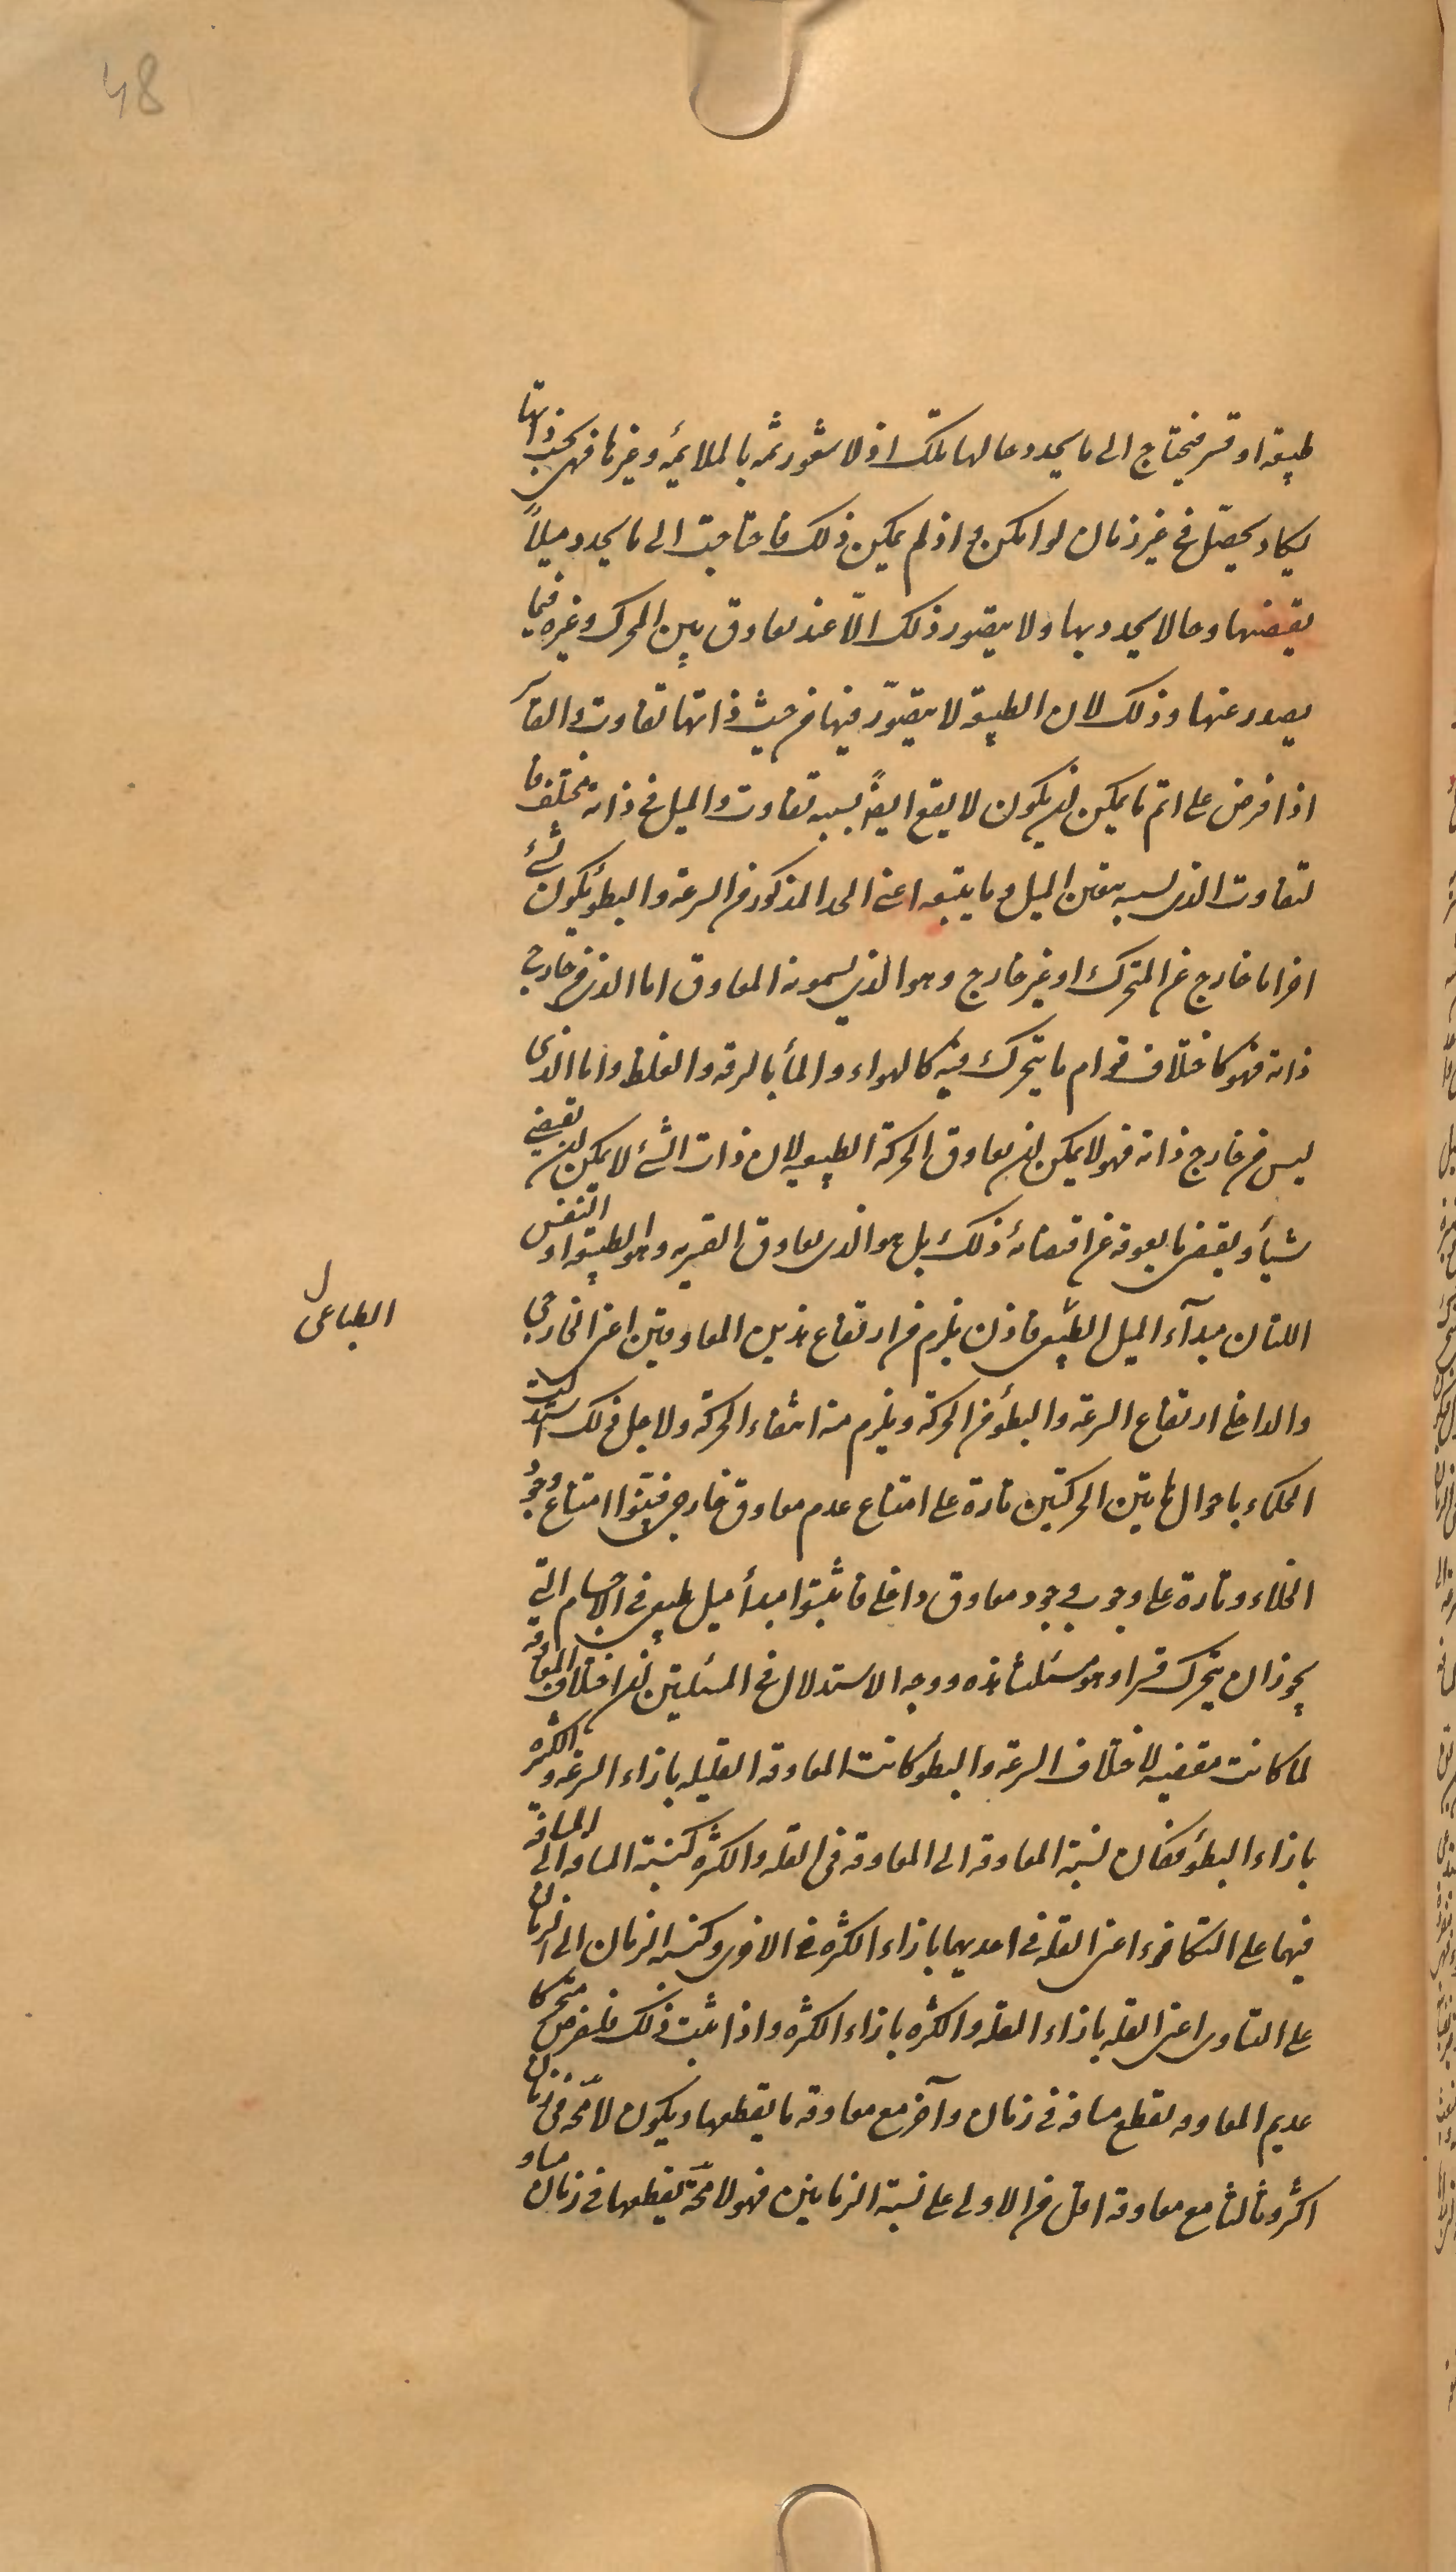 48
طبيعة او قسر فيحتاج الى ما يحدد حالها تلك اذ لا شعور ثمه بالملائمه وغيرها فهى بحسب ذاتها
يكاد يحصّل فى غير زمان لو امكن و اذ لم يمكن ذلك فاحتاجت الى ما يحدد ميلاً
يقتضيها وحالا يحدد بها ولا يتصور ذلك الّا عند تعاوق بين المحرك وغيره فيما
يصدر عنها وذلك لان الطبيعة لا يتصوّر فيها من حيث ذاتها تفاوت والقآ
اذا فرض على اتم ما يمكن ان يكون لا يقع ايضاً بسببه تفاوت والميل فى ذاته مختلف فا
لتفاوت الذى بسببه يتعين الميل و ما يتبعه اعنى الحد المذكور من السرعة والبطؤ يكون شئ
اخر اما خارج عن المتحرك او غير خارج وهو الذى يسمونه المعاوق اما الذى من خارج
ذاته فهو كاختلاف قوام ما يتحرك فيه كالهواء والمأ بالرقه والغلظ واما الذى
ليس من خارج ذاته فهو لا يمكن ان يعاوق الحركة الطبيعيه لان ذات الشئ لا يمكن ان يقتضى
شيأ ويقتضى ما يعوقه عن اقتضائه ذلك بل هو الذى يعاوق القسريه وهو الطبيعة او النفس
اللتان مبدآء الميل الطبيعى فاذن يلزم من ارتفاع هذين المعاوقين اعنى الخارجى
الطباعى ل
والداخلى ارتفاع السرعة والبطؤ من الحركة ويلزم منه انتفاء الحركة ولاجل ذلك استدلت
الحكماء باحوال هاتين الحركتين تارة على امتناع عدم معاوق خارجى فبيّنوا امتناع وجود
الخلاء وتارة على وجوب وجود معاوق داخلى فاثبتوا مبدأ ميل طبيعى فى الاجسام التى
يجوز ان يتحرك قسرا وهو مسئلتنا هذه ووجه الاستدلال فى المسئلتين ان اختلاف المعاوقه
لما كانت مقتضيه لاختلاف السرعة والبطؤ كانت المعاوقه القليله بازاء السرعه والكثيره
بازاء البطؤ فكان نسبة المعاوقه الى المعاوقه فى القله والكثره كنسبة المسافه الى المسافة
فيهما على التكافؤ اعنى القله فى احديهما بازاء الكثره فى الاخرى وكنسبه الزمان الى الزمان
على التساوى اعنى القله بازاء القله والكثره بازاء الكثره واذا ثبت ذلك فلنفرض متحركا
عديم المعاوقه يقطع مسافه فى زمان وآخر مع معاوقه ما يقطعها ويكون لا محّه فى زمان
اكثر وثالثا مع معاوقه اقل من الاولى على نسبة الزمانين فهو لا محّة يقطعها فى زمان مساو